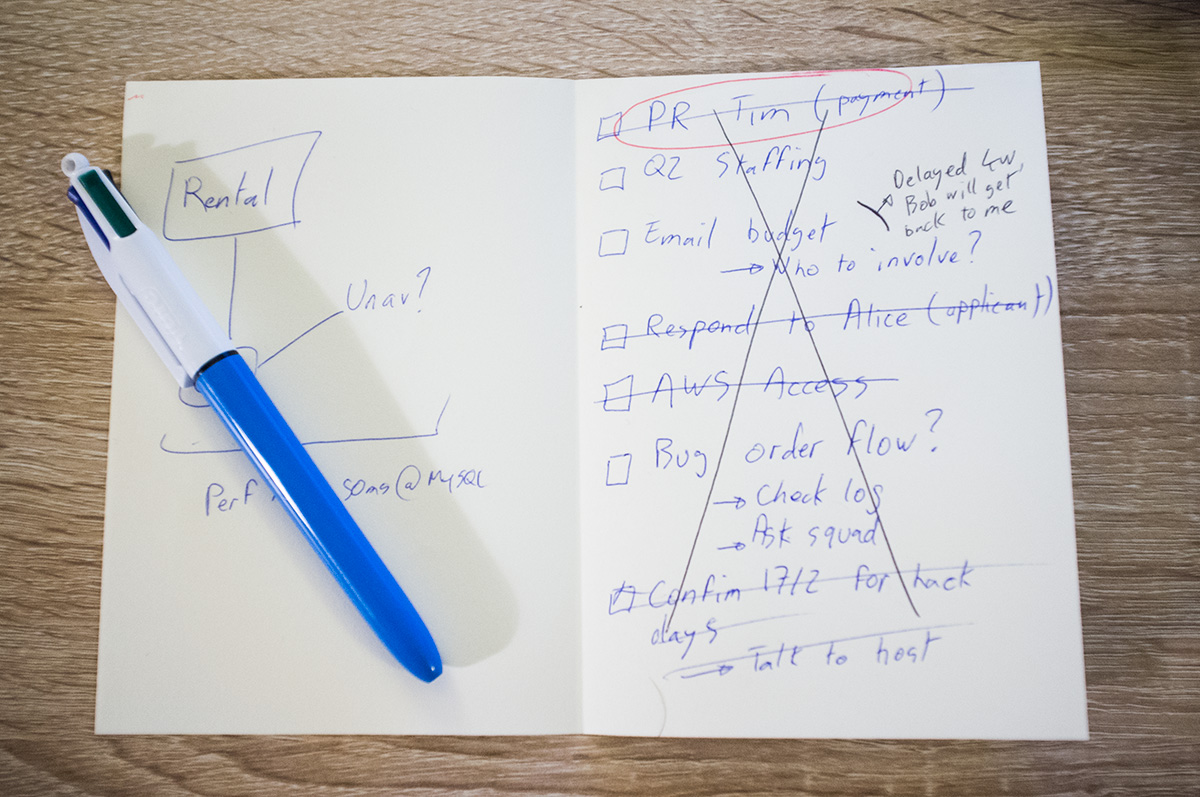 Rental
Unav?
Perf 50ms@MySQL
PR Tim (payment)
Q2 Staffing
Delayed 4w,
Bob will get
back to me
Email budget
→ Who to involve?
Respond to Alice (applicant)
AWS Access
Bug order flow?
→ Check log
→ Ask squad
Confim 17/2 for hack
days
→ Talk to host